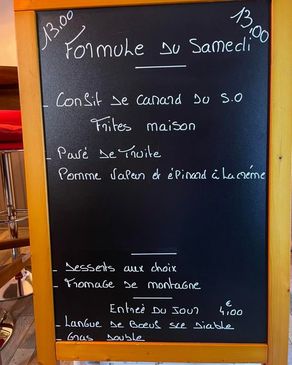 13,00 13,00
Formule Du Samedi
- Confit De Canard Du S.O
Frites maison
- Pavé De Truite
Pomme Vapeur et épinard à La crème
- Desserts aux choix
- Fromage De montagne
Entrée Du Jour 4,00 €
- Langue De Boeuf sce Diable
- Gras Double